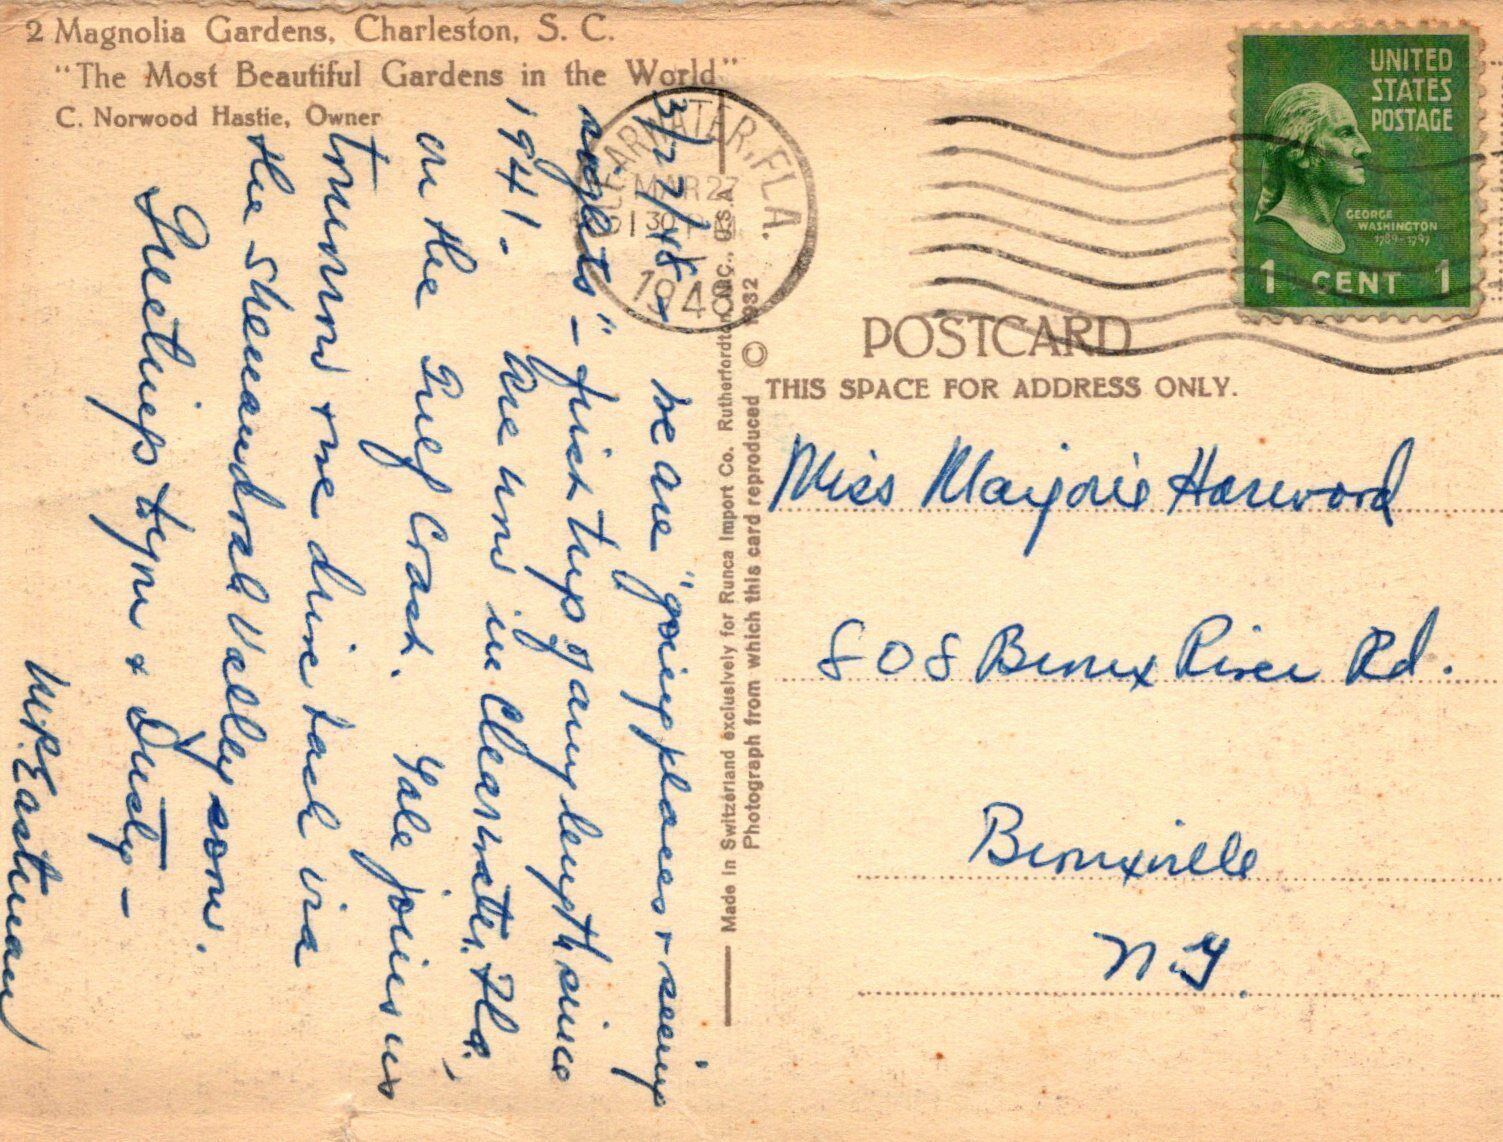 2 Magnolia Gardens, Charleston, S. C.
"The Most Beautiful Gardens in the World"
C. Norwood Hastie, Owner
3/27/48
We are "going places & seeing
sights" – first trip of any length since
1941. We are in Clearwater, Fla.,
on the Gulf Coast. Gale joins us
tomorrow & we drive back via
the Shenandoah Valley soon.
Greetings to you & Dusty –
M.R. Eastman
Made in Switzerland exclusively for Runca Import Co. Rutherfordton, N.C., U.S.A.
Photograph from which this card reproduced © 1932
CLEARWATER, FLA.
MAR 27
1 30 PM
1948
UNITED
STATES
POSTAGE
GEORGE
WASHINGTON
1789-1797
1 CENT 1
POSTCARD
THIS SPACE FOR ADDRESS ONLY.
Miss Marjorie Harwood
808 Bronx River Rd.
Bronxville
N.Y.